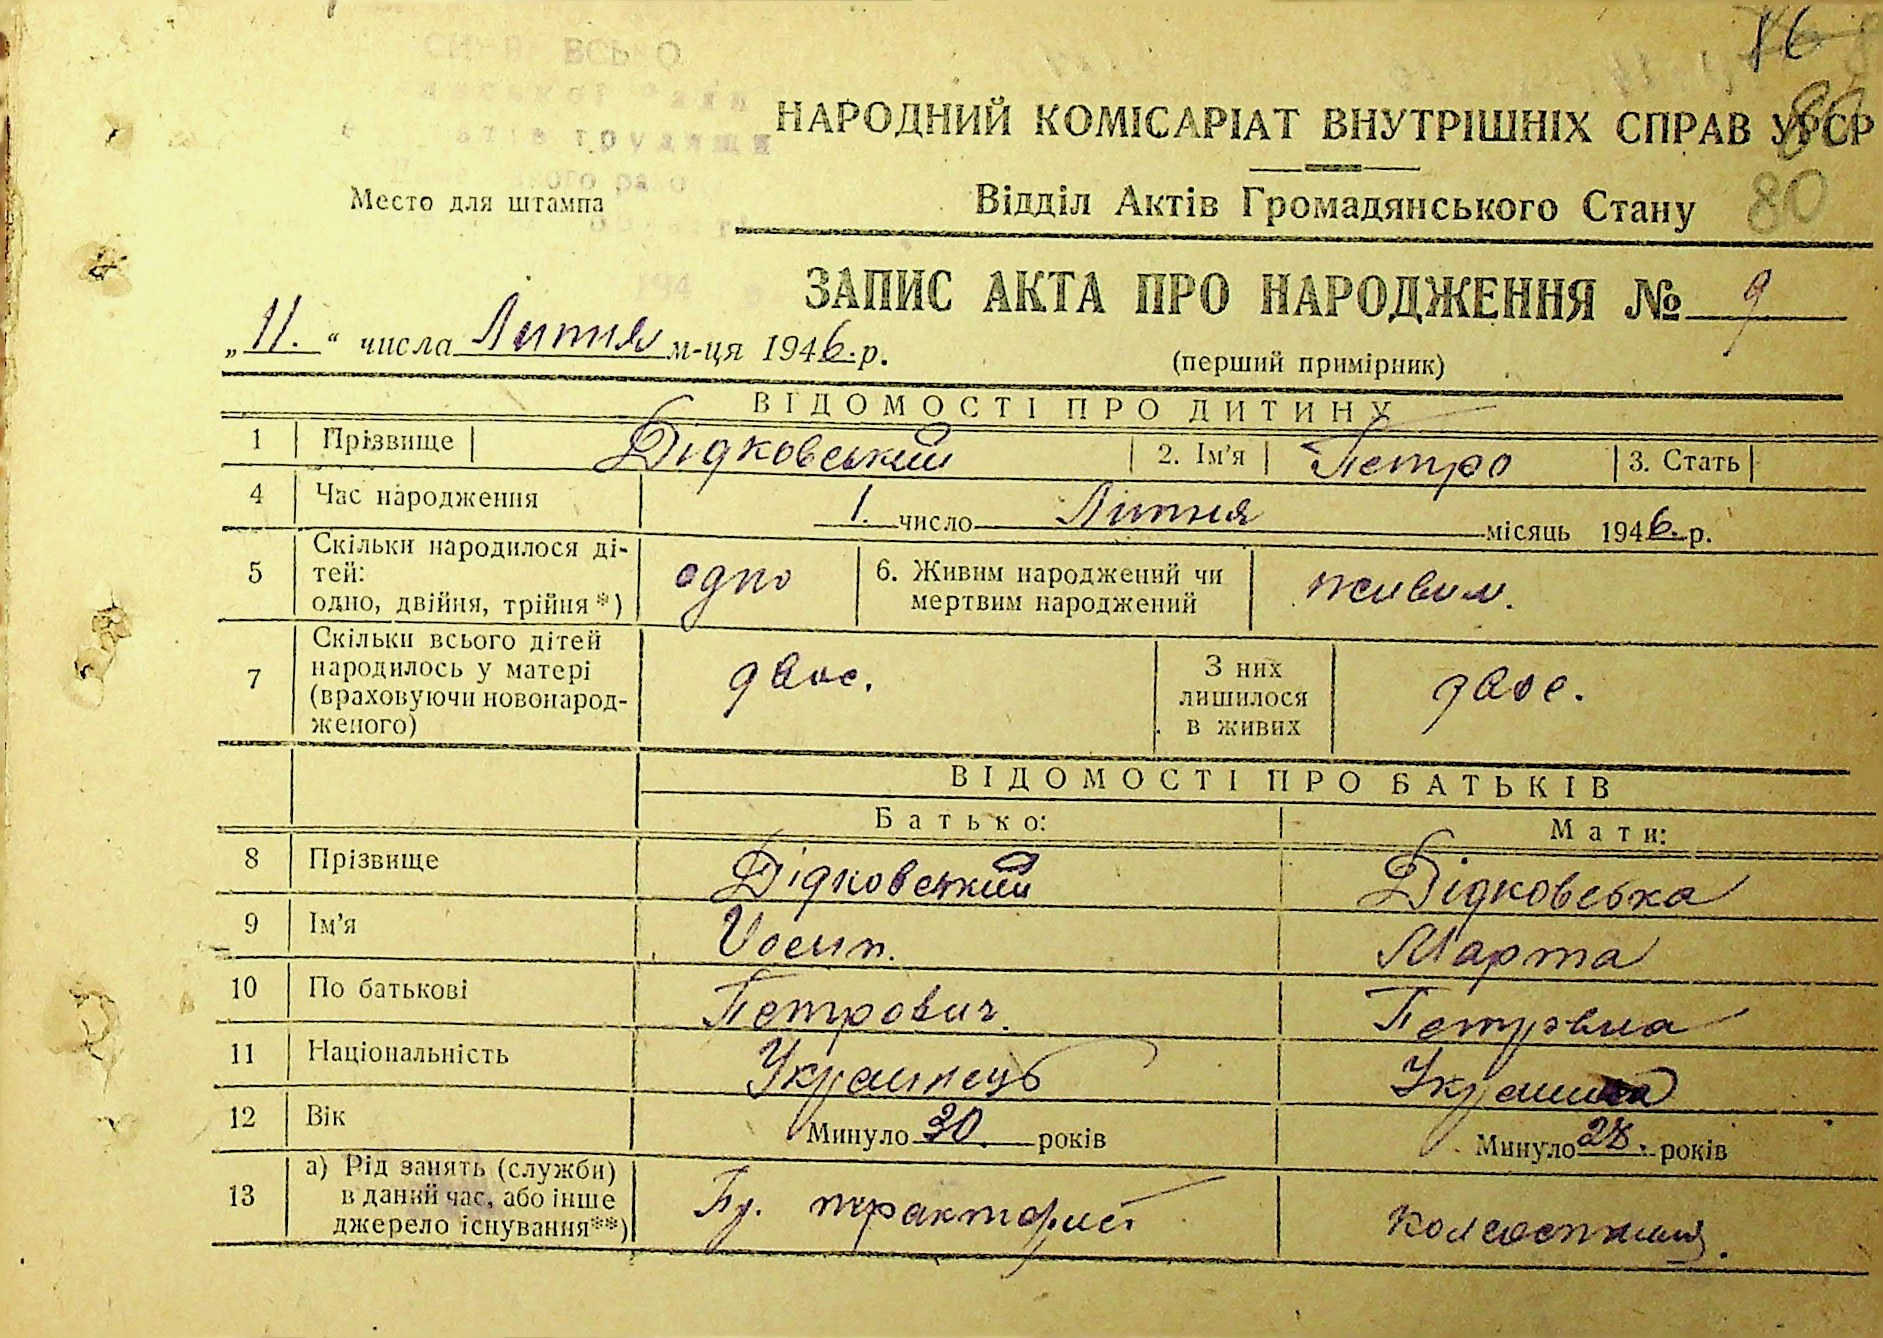 16
НАРОДНИЙ КОМІСАРІАТ ВНУТРІШНІХ СПРАВ УРСР
Место для штампа
Відділ Актів Громадянського Стану
80
ЗАПИС АКТА ПРО НАРОДЖЕННЯ № 9
„11.“ числа Липня м-ця 1946.р.
(перший примірник)
ВІДОМОСТІ ПРО ДИТИНУ
1 Прізвище Дідковський 2. Ім’я Петро 3. Стать
4 Час народження 1. число Липня місяць 1946.р.
5 Скільки народилося ді-
тей:
одно, двійня, трійня*) одно 6. Живим народжений чи
мертвим народжений живим.
7 Скільки всього дітей
народилось у матері
(враховуючи новонарод-
женого) двоє. З них
лишилося
в живих двоє.
ВІДОМОСТІ ПРО БАТЬКІВ
Батько: Мати:
8 Прізвище Дідковський Дідковська
9 Ім’я Йосип. Марта
10 По батькові Петрович. Петрівна
11 Національність Українець Українка
12 Вік Минуло 30. років Минуло 28. років
13 а) Рід занять (служби)
в даний час, або інше
джерело існування**) тракторист колгоспниця.